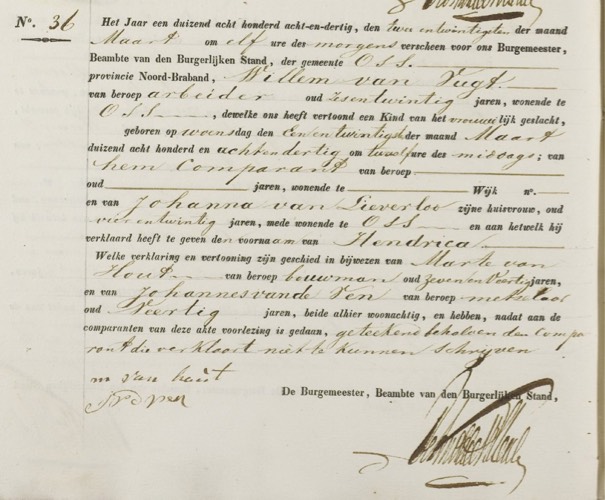 N.º 36
Het Jaar een duizend acht honderd acht-en-dertig, den Twee entwintigsten der maand
Maart om elf ure des morgens verscheen voor ons Burgemeester,
Beambte van den Burgerlijken Stand, der gemeente OSS
provincie Noord-Braband, Willem van Vugt
van beroep arbeider oud zesentwintig jaren, wonende te
OSS, dewelke ons heeft vertoond een Kind van het vrouwelijk geslacht,
geboren op woensdag den Een entwintigste der maand Maart
duizend acht honderd en achtendertig om twaalf ure des middags; van
hem Comparant van beroep
oud jaren, wonende te Wijk nº.
en van Johanna van Lieverloo zijne huisvrouw, oud
vier entwintig jaren, mede wonende te OSS en aan hetwelk hij
verklaard heeft te geven den voornaam van Hendrica
Welke verklaring en vertooning zijn geschied in bijwezen van Marte van
Hout van beroep bouwman oud zeven en Veertig jaren,
en van Johannes vande Ven van beroep metselaar
oud Veertig jaren, beide alhier woonachtig, en hebben, nadat aan de
comparanten van deze akte voorlezing is gedaan, geteekend behalven den Compa
rant die verklaart niet te kunnen schrijven
m van hout
De Burgemeester, Beambte van den Burgerlijken Stand,